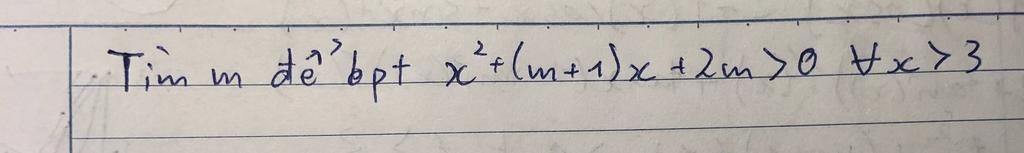 Tìm m để bpt x²+(m+1)x+2m>0 ∀x>3